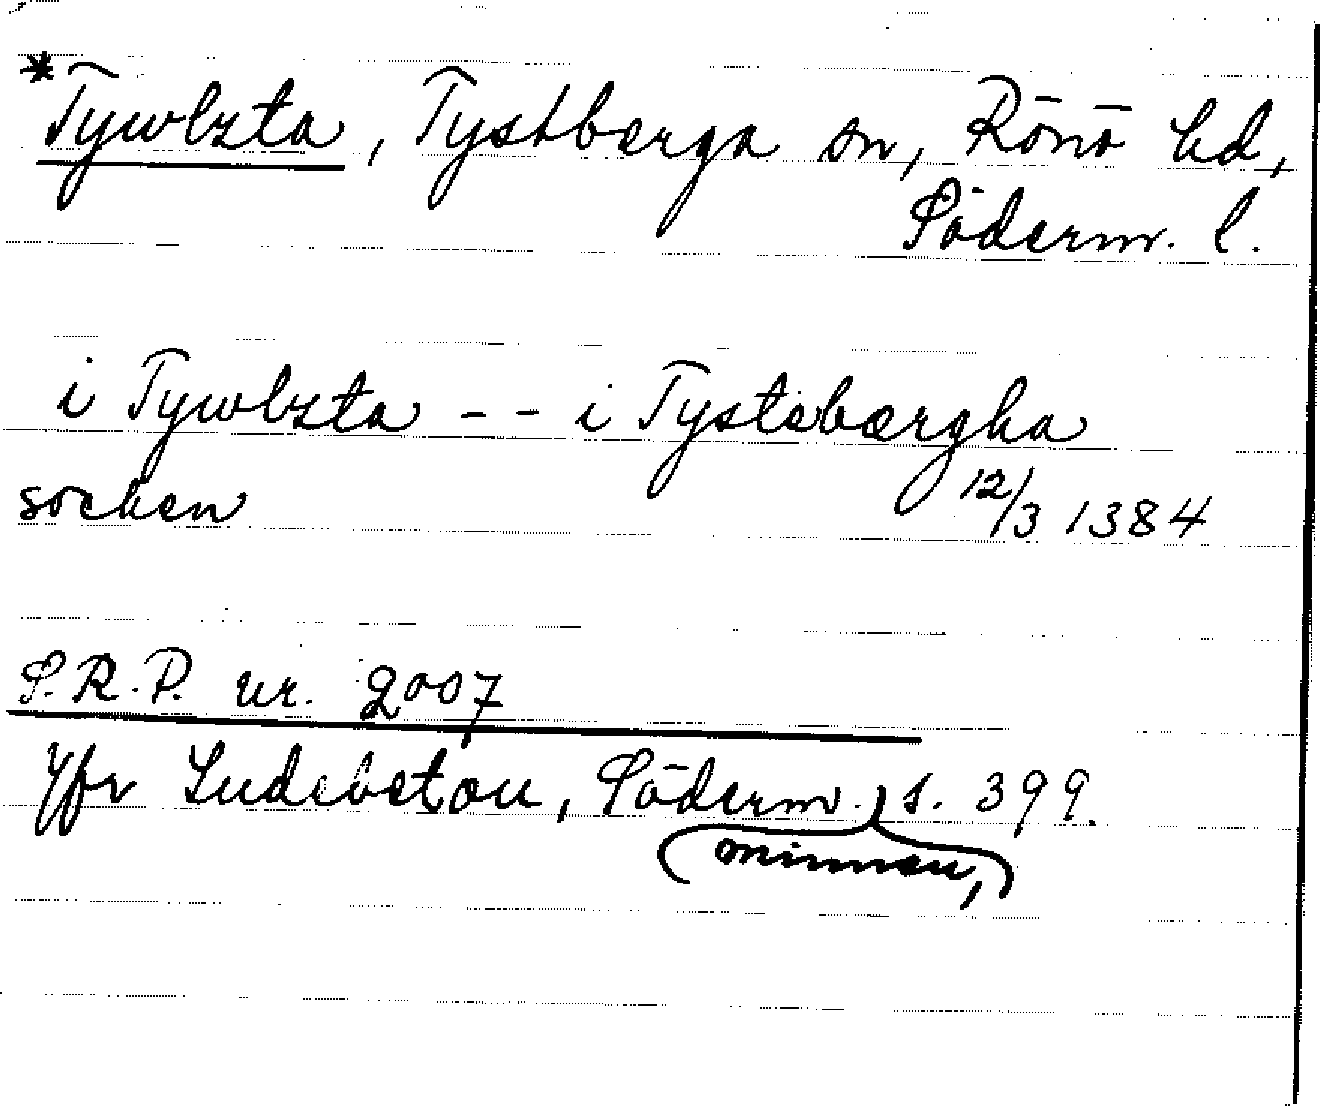 *Tywlzta, Tystberga sn, Rönö hd,
Söderm. l.
i Tywlzta -- i Tystebærgha
socken 12/3 1384
S.R.P. nr. 2007
Jfr Ludebetou, Söderm. s. 399.
minnen,